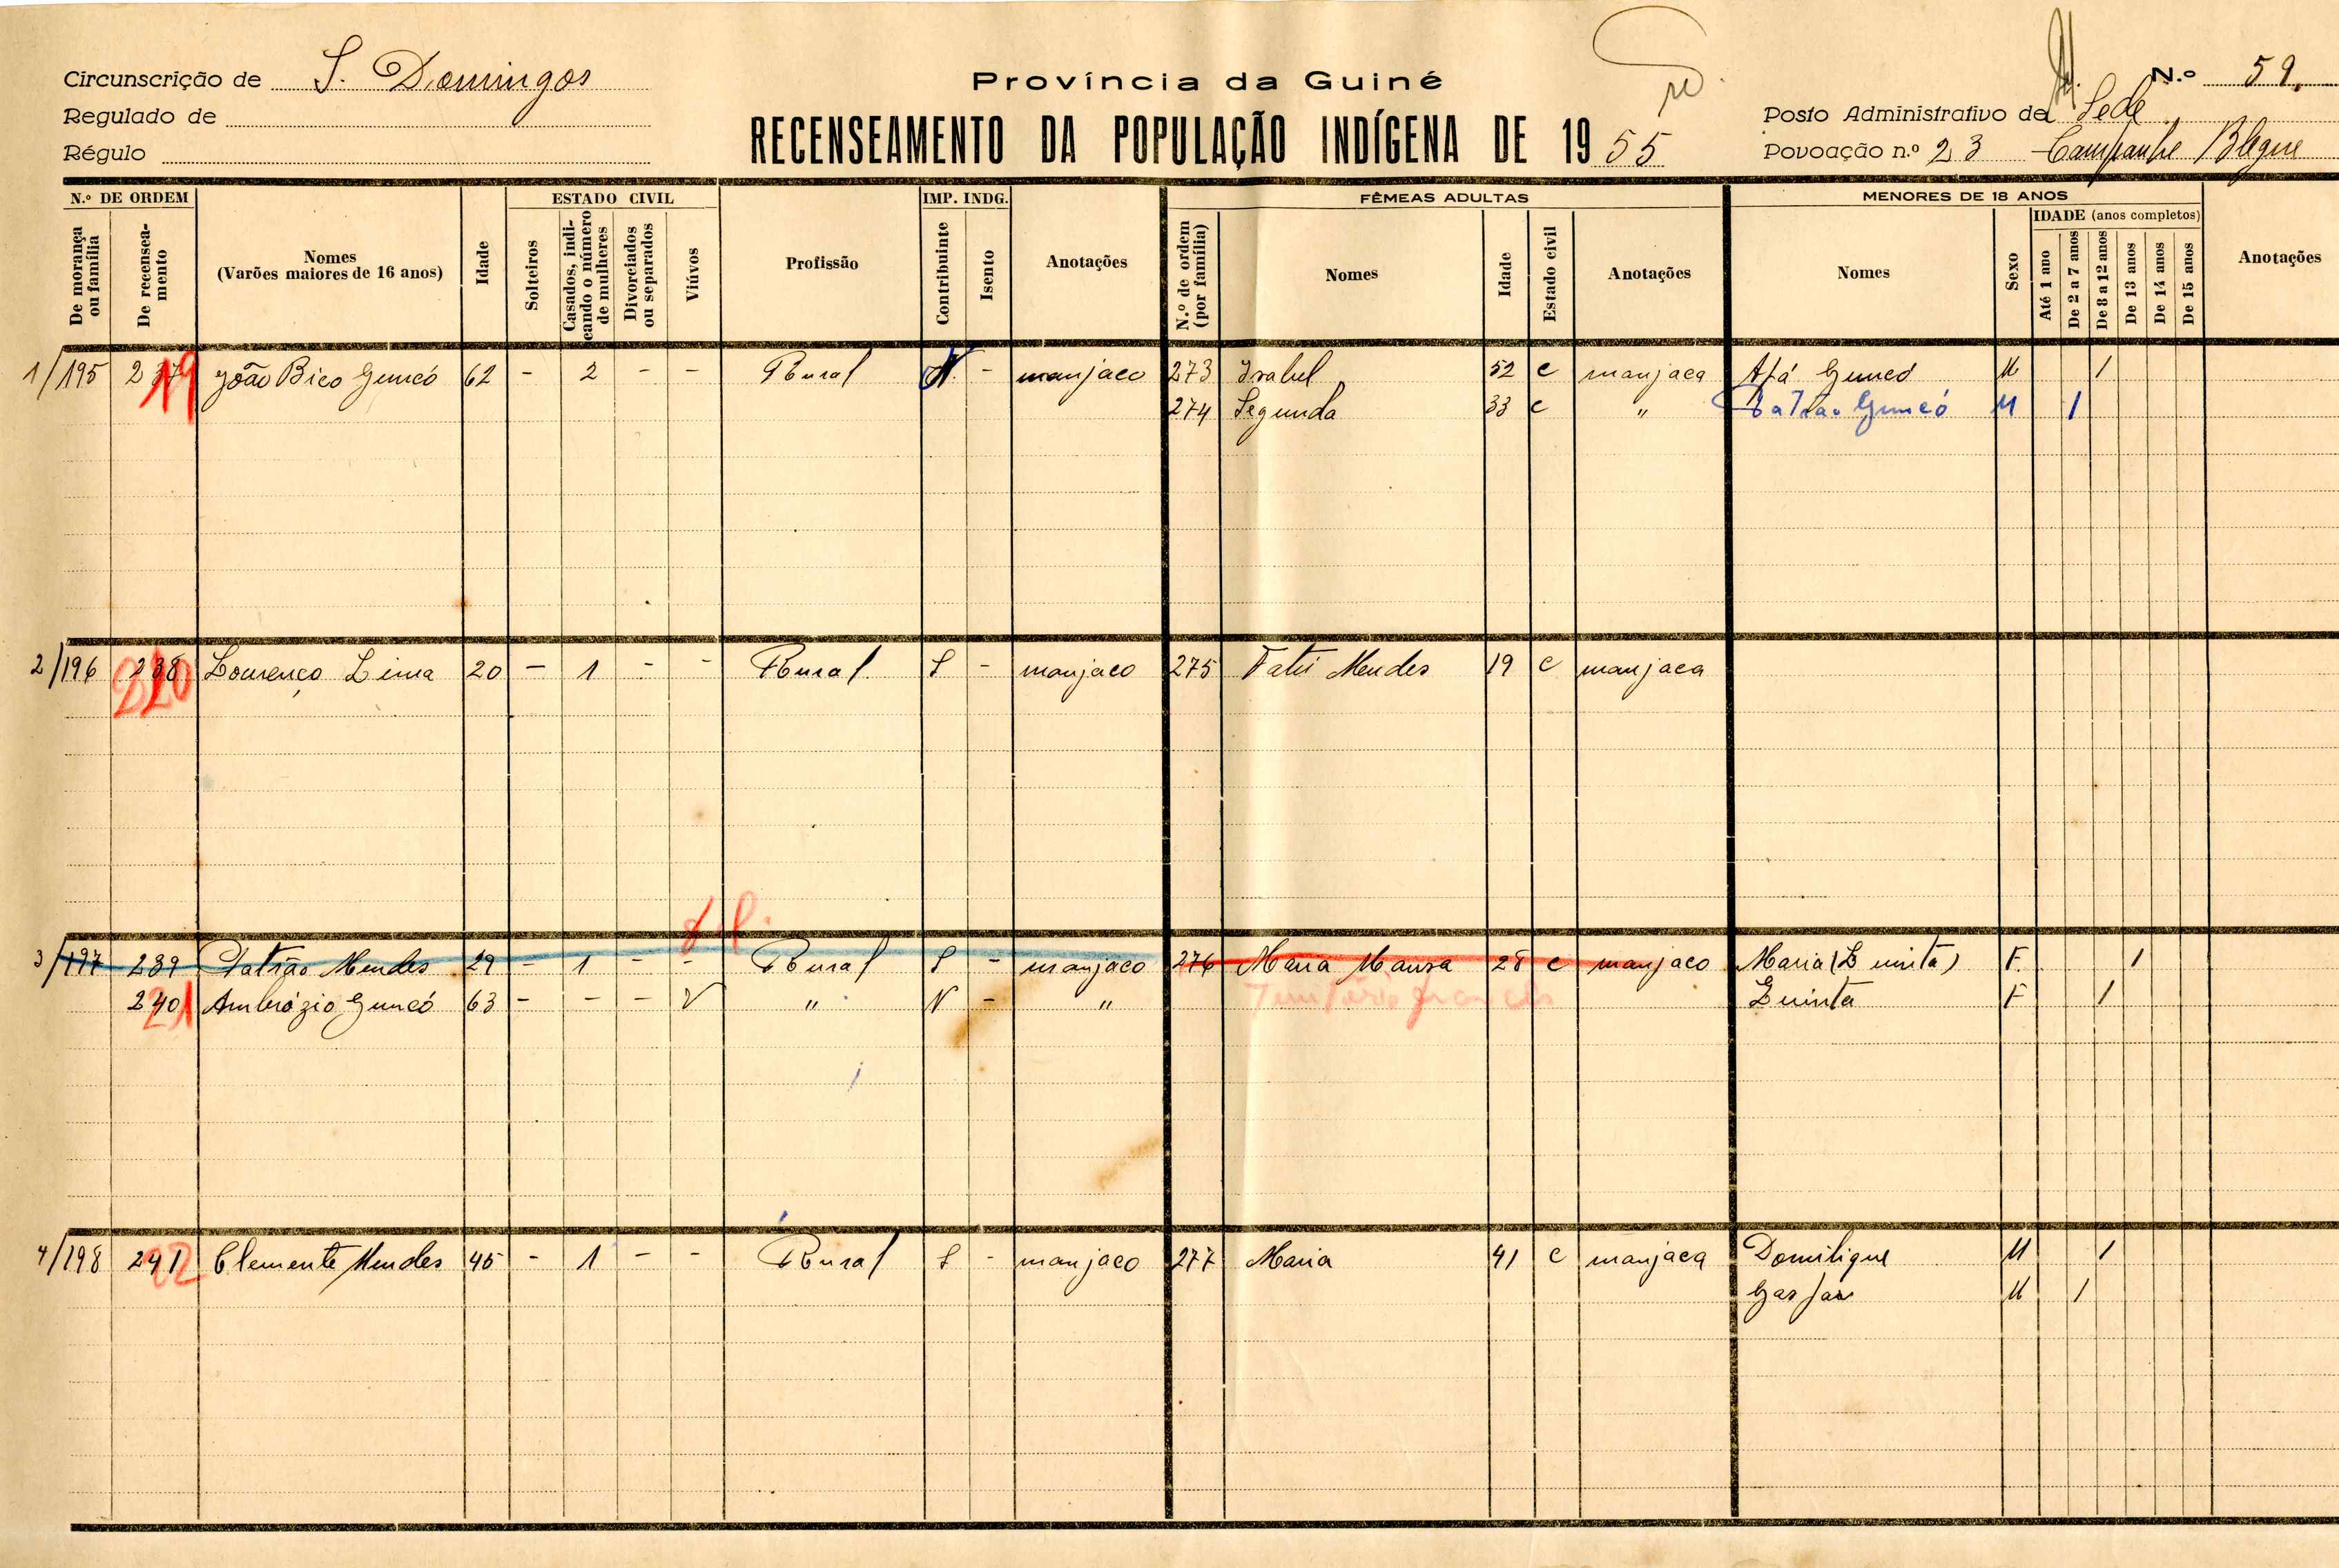 Circunscrição de S. Domingos
Regulado de
Régulo
Província da Guiné
RECENSEAMENTO DA POPULAÇÃO INDÍGENA DE 1955
N.º 59.
Posto Administrativo de Sede
Povoação n.º 23 Campanhe Blegue
N.º DE ORDEM
De morança ou família
De recenseamento
Nomes
(Varões maiores de 16 anos)
Idade
ESTADO CIVIL
Solteiros
Casados, indicando o número de mulheres
Divorciados ou separados
Viúvos
Profissão
IMP. INDG.
Contribuinte
Isento
Anotações
FÊMEAS ADULTAS
N.º de ordem (por família)
Nomes
Idade
Estado civil
Anotações
MENORES DE 18 ANOS
Nomes
Sexo
IDADE (anos completos)
Até 1 ano
De 2 a 7 anos
De 8 a 12 anos
De 13 anos
De 14 anos
De 15 anos
Anotações
1/195 237 19 João Bico Guncó 62 - 2 - - Rural N. - manjaco 273 Isabel 52 c manjaca Afá Guncó M 1
274 Segunda 33 c " Patrão Guncó M 1
2/196 238 20 Lourenço Lima 20 - 1 - - Rural S - manjaco 275 Tatú Mendes 19 c manjaca
3/197 239 Patrão Mendes 29 - 1 - - Rural S - manjaco 276 Maria Mansa 28 c manjaco Maria (Quinta) F. 1
240 21 Ambrózio Guncó 63 - - - V " N - " Território francês Quinta F 1
4/198 241 22 Clemente Mendes 45 - 1 - - Rural S - manjaco 277 Maria 41 c manjaca Domilique M 1
Gaspar M 1